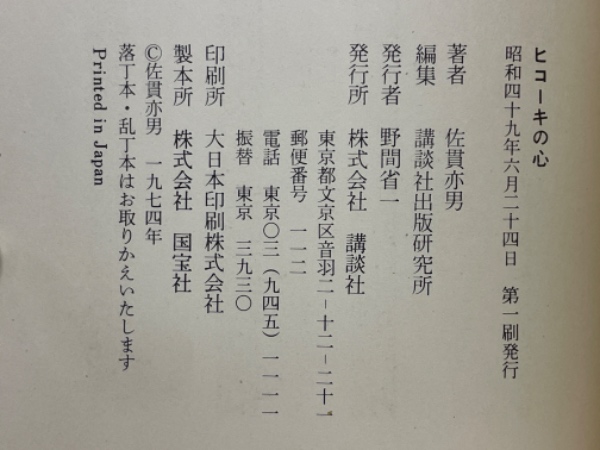 ヒコーキの心
昭和四十九年六月二十四日　第一刷発行
著者　佐貫亦男
編集　講談社出版研究所
発行者　野間省一
発行所　株式会社　講談社
東京都文京区音羽二－十二－二十一
郵便番号　一一二
電話　東京〇三（九四五）一一一一
振替　東京　三九三〇
印刷所　大日本印刷株式会社
製本所　株式会社　国宝社
©佐貫亦男　一九七四年
落丁本・乱丁本はお取りかえいたします
Printed in Japan